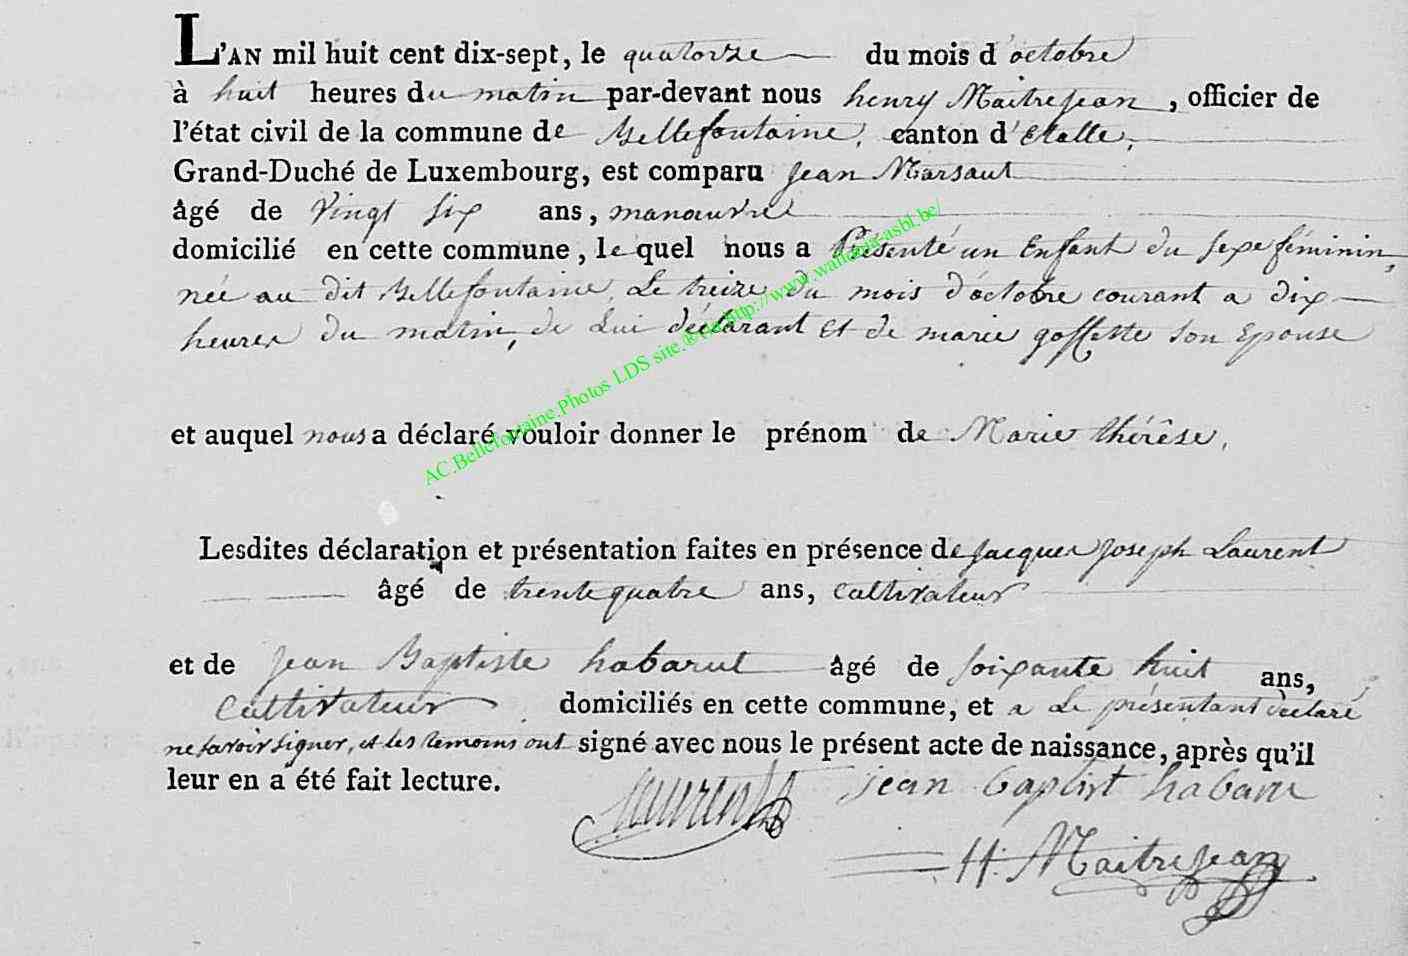 L'AN mil huit cent dix-sept, le quatorze du mois d'octobre
à huit heures du matin par-devant nous henry Maitrejean, officier de
l'état civil de la commune de Bellefontaine, canton d'Etalle,
Grand-Duché de Luxembourg, est comparu Jean Marsaut
âgé de Vingt six ans, manœuvre
domicilié en cette commune, lequel nous a Présenté un Enfant du sexe féminin,
née au dit Bellefontaine, Le treize du mois d'octobre courant a dix
heures du matin, de Lui déclarant et de marie goffette son Epouse
et auquel nous a déclaré vouloir donner le prénom de Marie thérèse,
AC.Bellefontaine.Photos LDS site.
Lesdites déclaration et présentation faites en présence de Jacques Joseph Laurent
âgé de trente quatre ans, cultivateur
et de Jean Baptiste habarut âgé de soixante huit ans,
cultivateur domiciliés en cette commune, et a Le présentant déclaré
ne savoir signer, et les temoins ont signé avec nous le présent acte de naissance, après qu'il
leur en a été fait lecture.
Laurent jean baptist habaru
H. Maitrejean